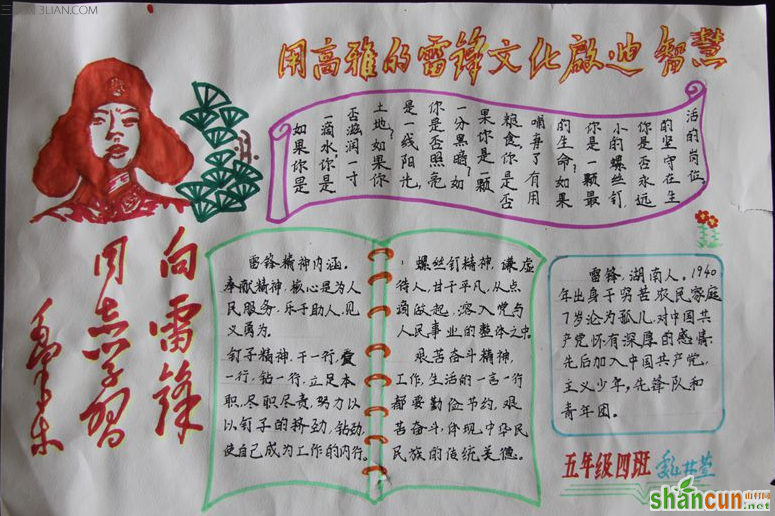 三联网 3LIAN.COM
用高雅的雷锋文化啟迪智慧
如果你是
一滴水,你是
否滋润一寸
土地?如果你
是一线阳光,
你是否照亮
一分黑暗?如
果你是一颗
粮食,你是否
哺育了有用
的生命?如果
你是一颗最
小的螺丝钉,
你是否永远
的坚守在生
活的岗位
向雷锋
同志学习
毛泽东
雷锋精神内涵。
奉献精神,核心是为人
民服务,乐于助人,见
义勇为。
钉子精神,干一行,爱
一行,钻一行,立足本
职,尽职尽责,努力以
以钉子的挤劲,钻劲,
使自己成为工作的内行。
螺丝钉精神,谦虚
待人,甘于平凡,从点
滴做起,溶入党与
人民事业的整体之中。
艰苦奋斗精神,
工作,生活的一言一行
都要勤俭节约,艰
苦奋斗,体现中华民
民族的传统美德。
雷锋,湖南人。1940
年出身于穷苦农民家庭
7岁沦为孤儿,对中国共
产党怀有深厚的感情,
先后加入中国共产党,
主义少年,先锋队和
青年团。
五年级四班
shancun
山村网
.net